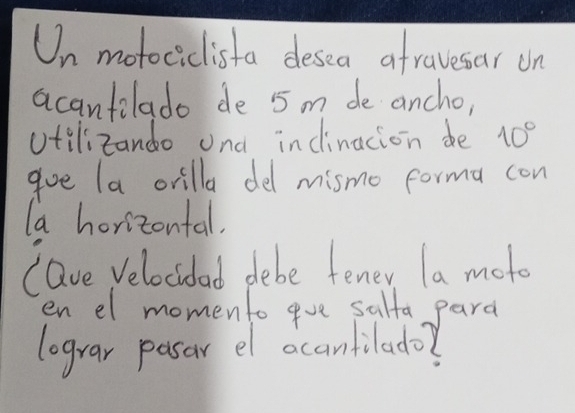 Un motociclista desea atravesar un
acantilado de 5 m de ancho,
utilizando una inclinación de 10°
que la orilla del mismo forma con
la horizontal.
¿Que velocidad debe tener la moto
en el momento que salta para
lograr pasar el acantilado?